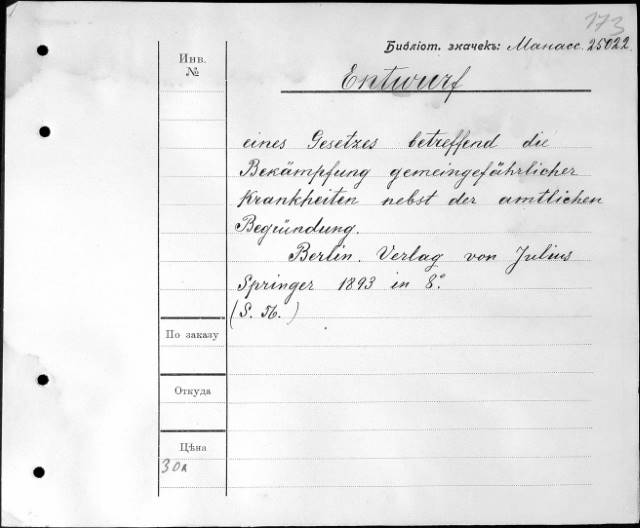 173
Библіот. значекъ: Манасс. 25022.
Инв.
№
Entwurf
eines Gesetzes betreffend die
Bekämpfung gemeingefährlicher
Krankheiten nebst der amtlichen
Begründung.
Berlin. Verlag von Julius
Springer 1893 in 8°.
(S. 56.)
По заказу
Откуда
Цѣна
30к